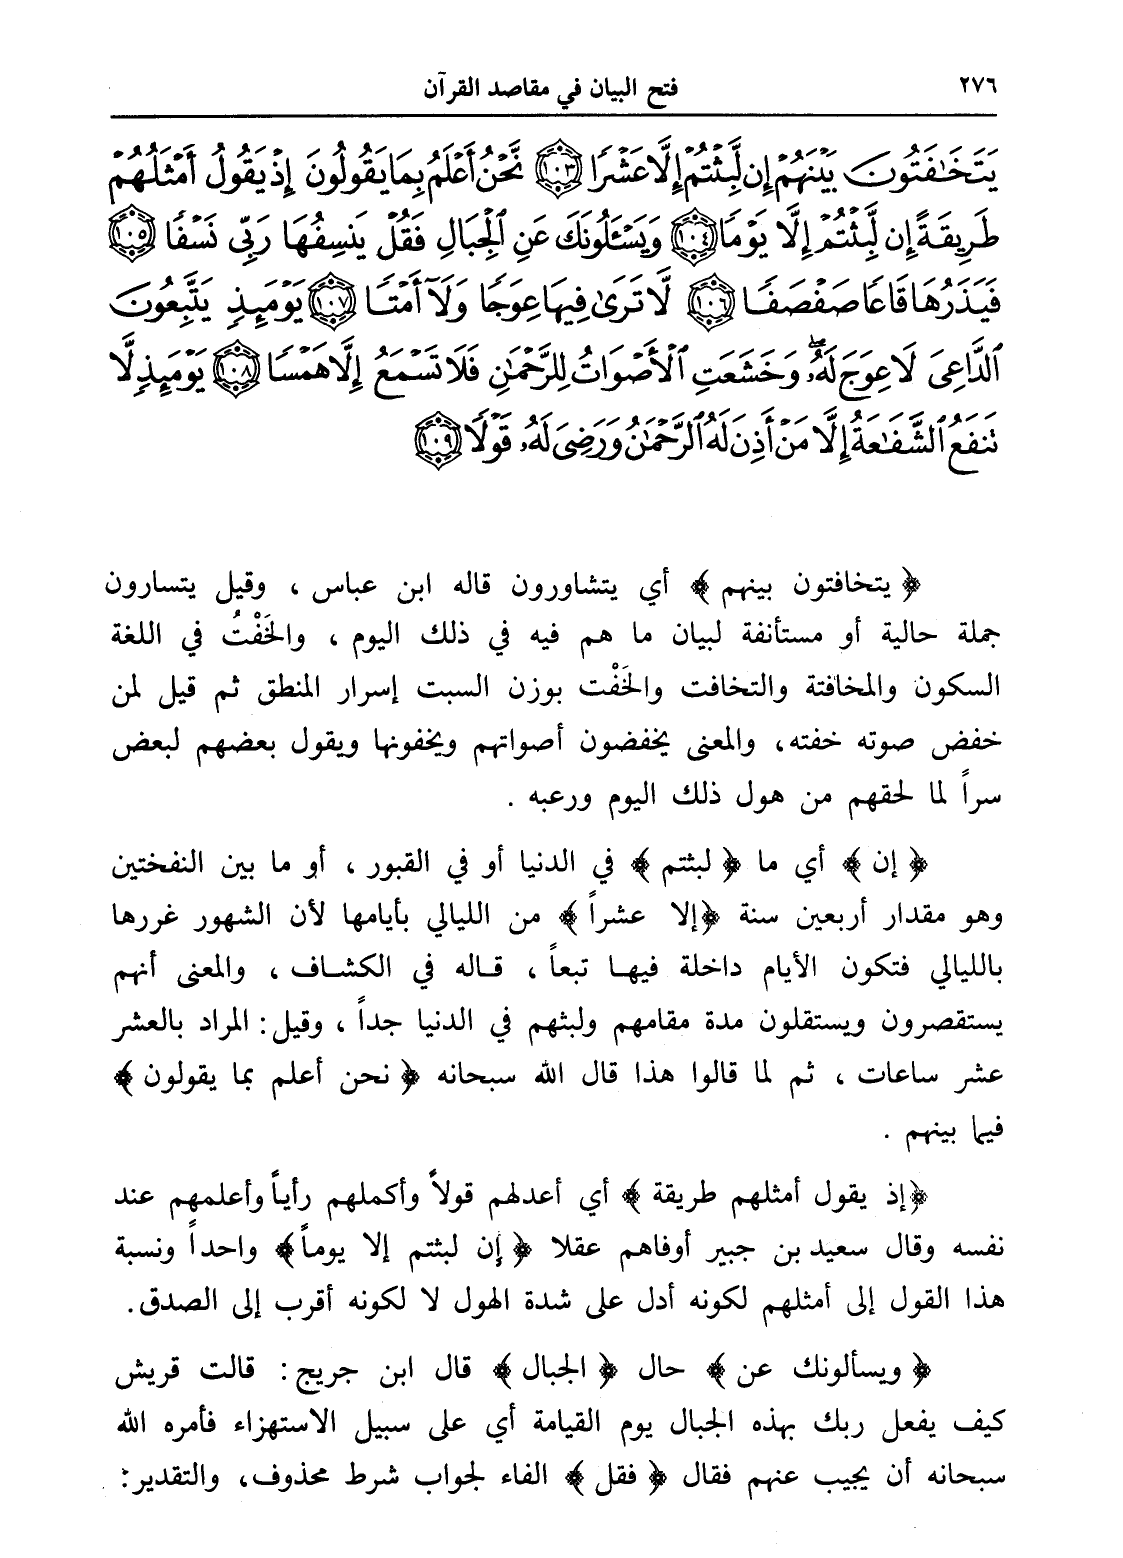 ٢٧٦ فتح البيان في مقاصد القرآن
يَتَخَٰفَتُونَ بَيْنَهُمْ إِن لَّبِثْتُمْ إِلَّا عَشْرًا ﴿١٠٣﴾ نَّحْنُ أَعْلَمُ بِمَا يَقُولُونَ إِذْ يَقُولُ أَمْثَلُهُمْ
طَرِيقَةً إِن لَّبِثْتُمْ إِلَّا يَوْمًا ﴿١٠٤﴾ وَيَسْـَٔلُونَكَ عَنِ ٱلْجِبَالِ فَقُلْ يَنسِفُهَا رَبِّى نَسْفًا ﴿١٠٥﴾
فَيَذَرُهَا قَاعًا صَفْصَفًا ﴿١٠٦﴾ لَّا تَرَىٰ فِيهَا عِوَجًا وَلَآ أَمْتًا ﴿١٠٧﴾ يَوْمَئِذٍ يَتَّبِعُونَ
ٱلدَّاعِىَ لَا عِوَجَ لَهُۥ ۖ وَخَشَعَتِ ٱلْأَصْوَاتُ لِلرَّحْمَٰنِ فَلَا تَسْمَعُ إِلَّا هَمْسًا ﴿١٠٨﴾ يَوْمَئِذٍ لَّا
تَنفَعُ ٱلشَّفَٰعَةُ إِلَّا مَنْ أَذِنَ لَهُ ٱلرَّحْمَٰنُ وَرَضِىَ لَهُۥ قَوْلًا ﴿١٠٩﴾
﴿ يتخافتون بينهم ﴾ أي يتشاورون قاله ابن عباس ، وقيل يتسارون
جملة حالية أو مستأنفة لبيان ما هم فيه في ذلك اليوم ، والخَفْتُ في اللغة
السكون والمخافتة والتخافت والخَفْت بوزن السبت إسرار المنطق ثم قيل لمن
خفض صوته خفته، والمعنى يخفضون أصواتهم ويخفونها ويقول بعضهم لبعض
سراً لما لحقهم من هول ذلك اليوم ورعبه .
﴿ إن ﴾ أي ما ﴿ لبثتم ﴾ في الدنيا أو في القبور ، أو ما بين النفختين
وهو مقدار أربعين سنة ﴿إلا عشراً ﴾ من الليالي بأيامها لأن الشهور غررها
بالليالي فتكون الأيام داخلة فيها تبعاً ، قاله في الكشاف ، والمعنى أنهم
يستقصرون ويستقلون مدة مقامهم ولبثهم في الدنيا جداً ، وقيل : المراد بالعشر
عشر ساعات ، ثم لما قالوا هذا قال الله سبحانه ﴿ نحن أعلم بما يقولون ﴾
فيما بينهم .
﴿إذ يقول أمثلهم طريقة ﴾ أي أعدلهم قولاً وأكملهم رأياً وأعلمهم عند
نفسه وقال سعيد بن جبير أوفاهم عقلا ﴿ إن لبثتم إلا يوماً﴾ واحداً ونسبة
هذا القول إلى أمثلهم لكونه أدل على شدة الهول لا لكونه أقرب إلى الصدق.
﴿ ويسألونك عن ﴾ حال ﴿ الجبال ﴾ قال ابن جريج : قالت قريش
كيف يفعل ربك بهذه الجبال يوم القيامة أي على سبيل الاستهزاء فأمره الله
سبحانه أن يجيب عنهم فقال ﴿ فقل ﴾ الفاء لجواب شرط محذوف، والتقدير :